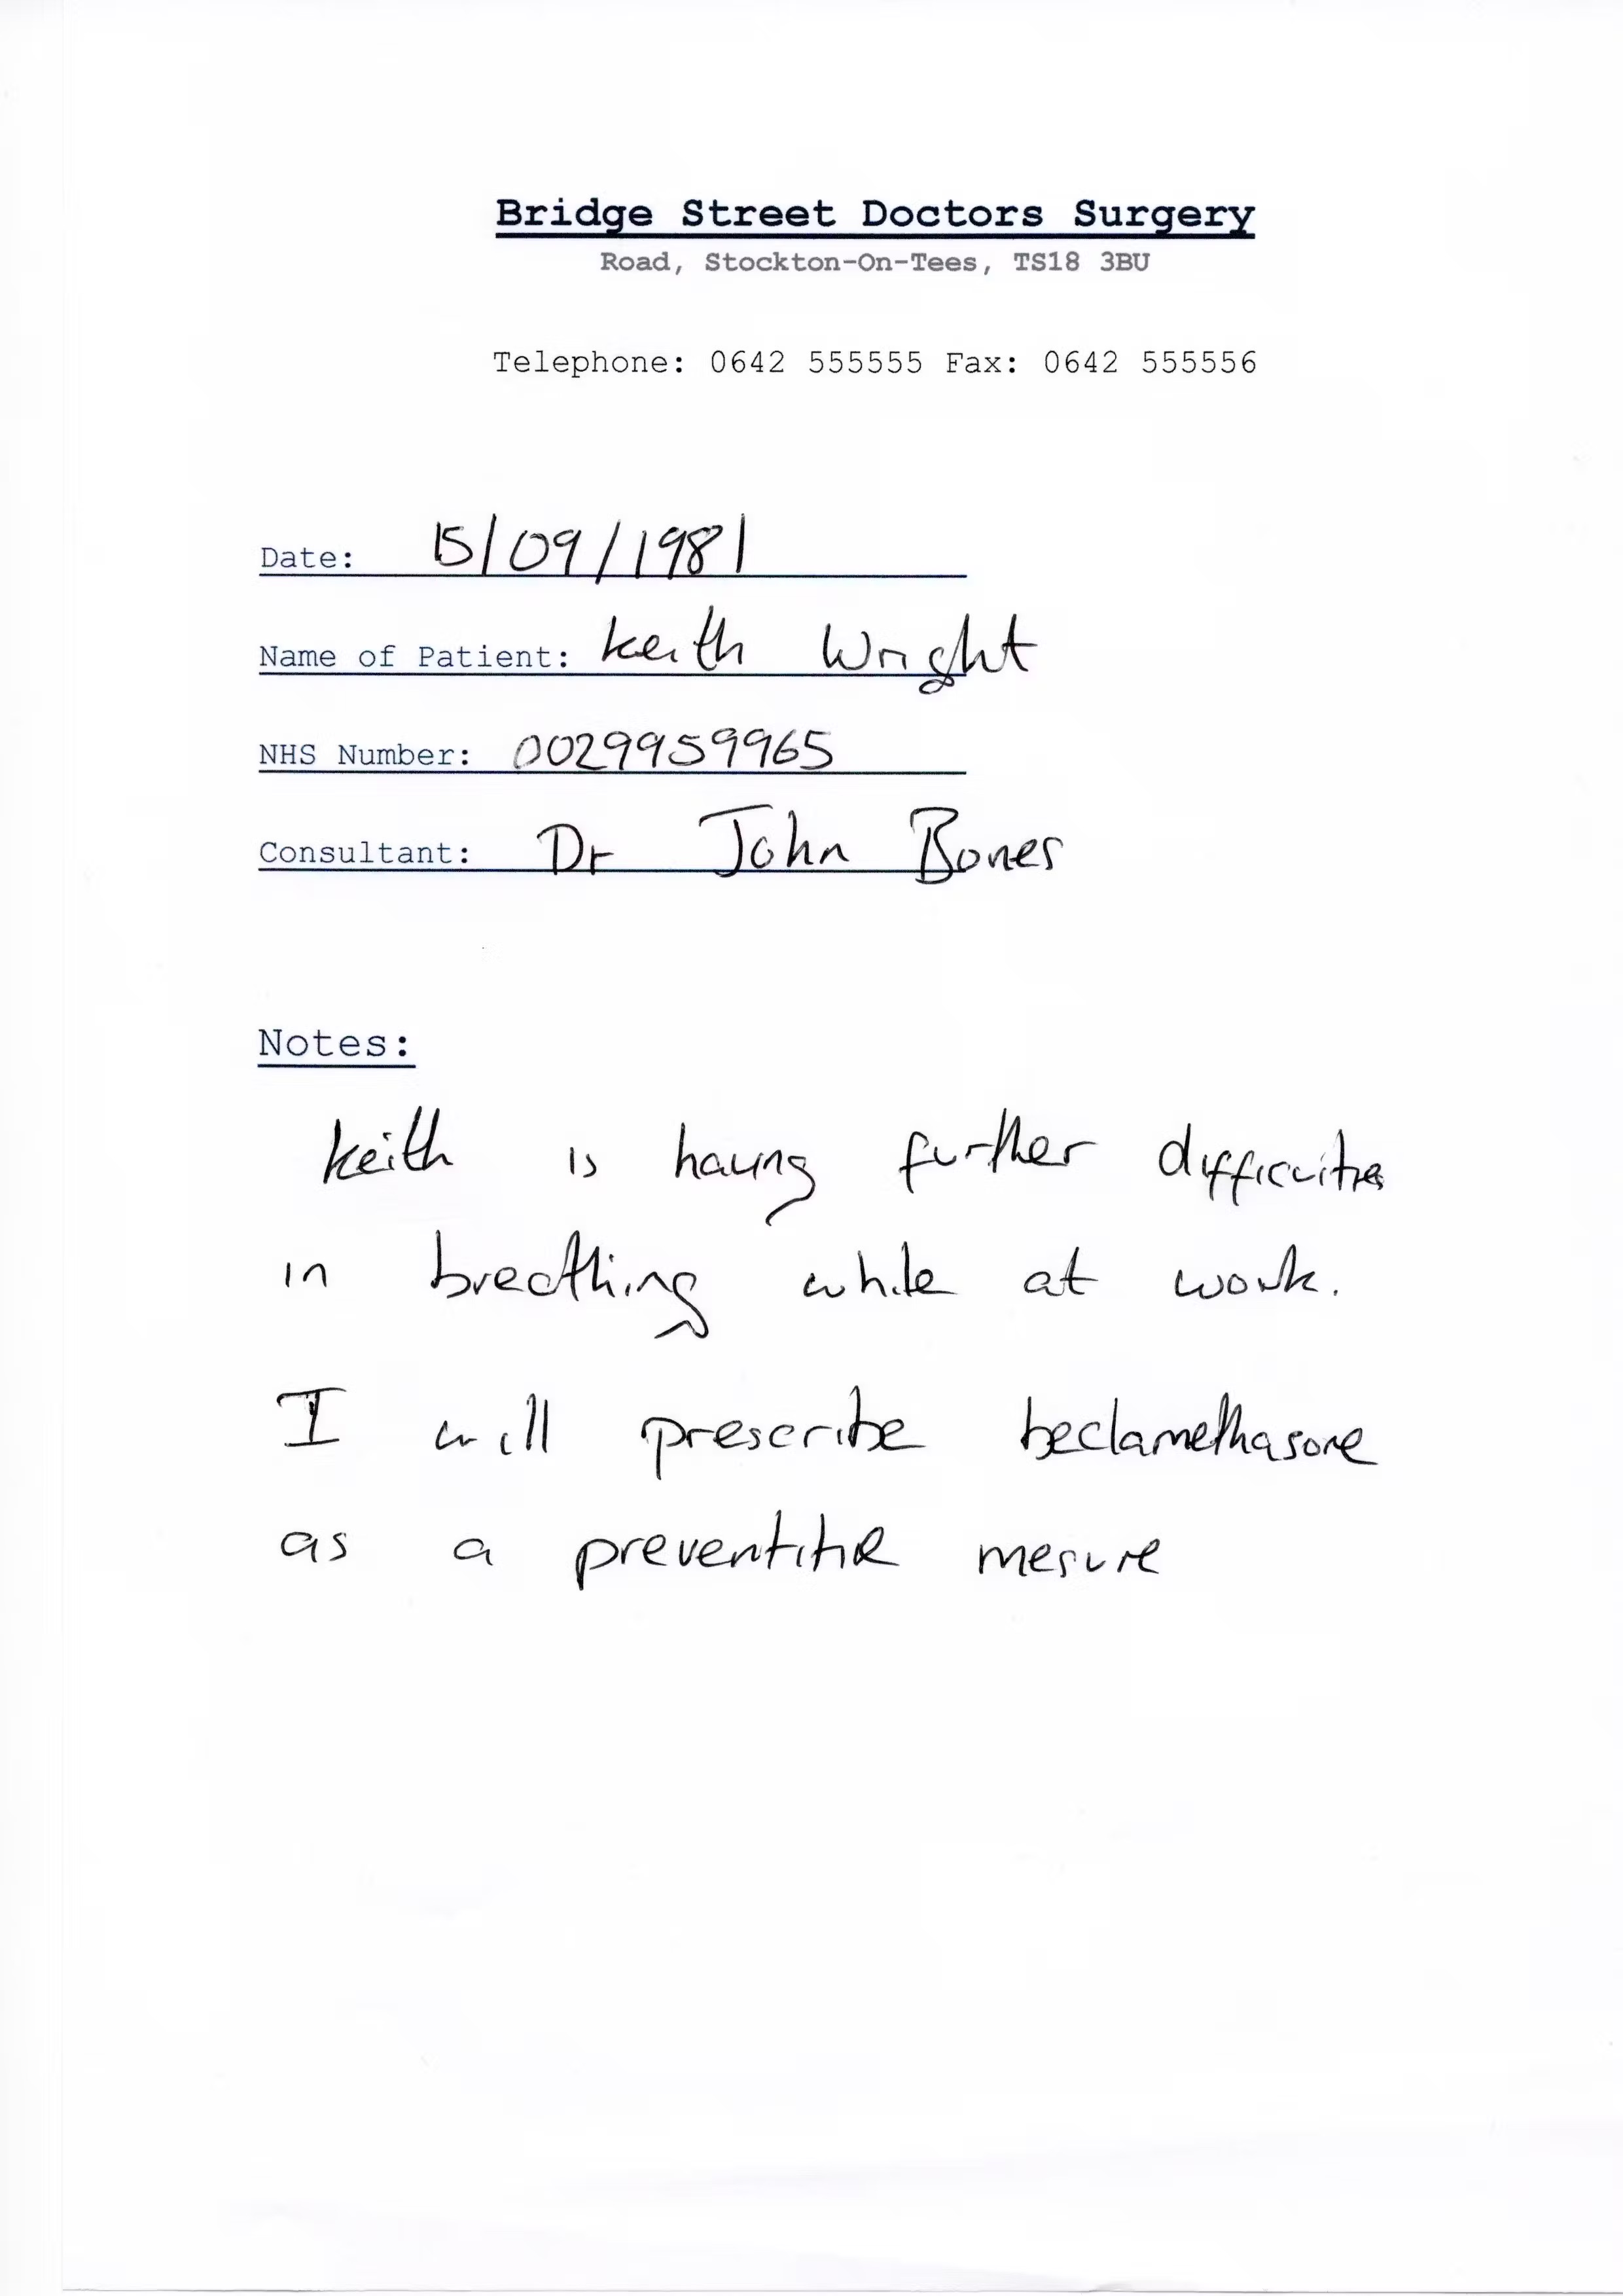 Bridge Street Doctors Surgery
Road, Stockton-On-Tees, TS18 3BU
Telephone: 0642 555555 Fax: 0642 555556
Date: 15/09/1981
Name of Patient: Keith Wright
NHS Number: 0029959965
Consultant: Dr John Bones
Notes:
Keith is having further difficulties
in breathing while at work.
I will prescribe beclamethasone
as a preventitive mesure